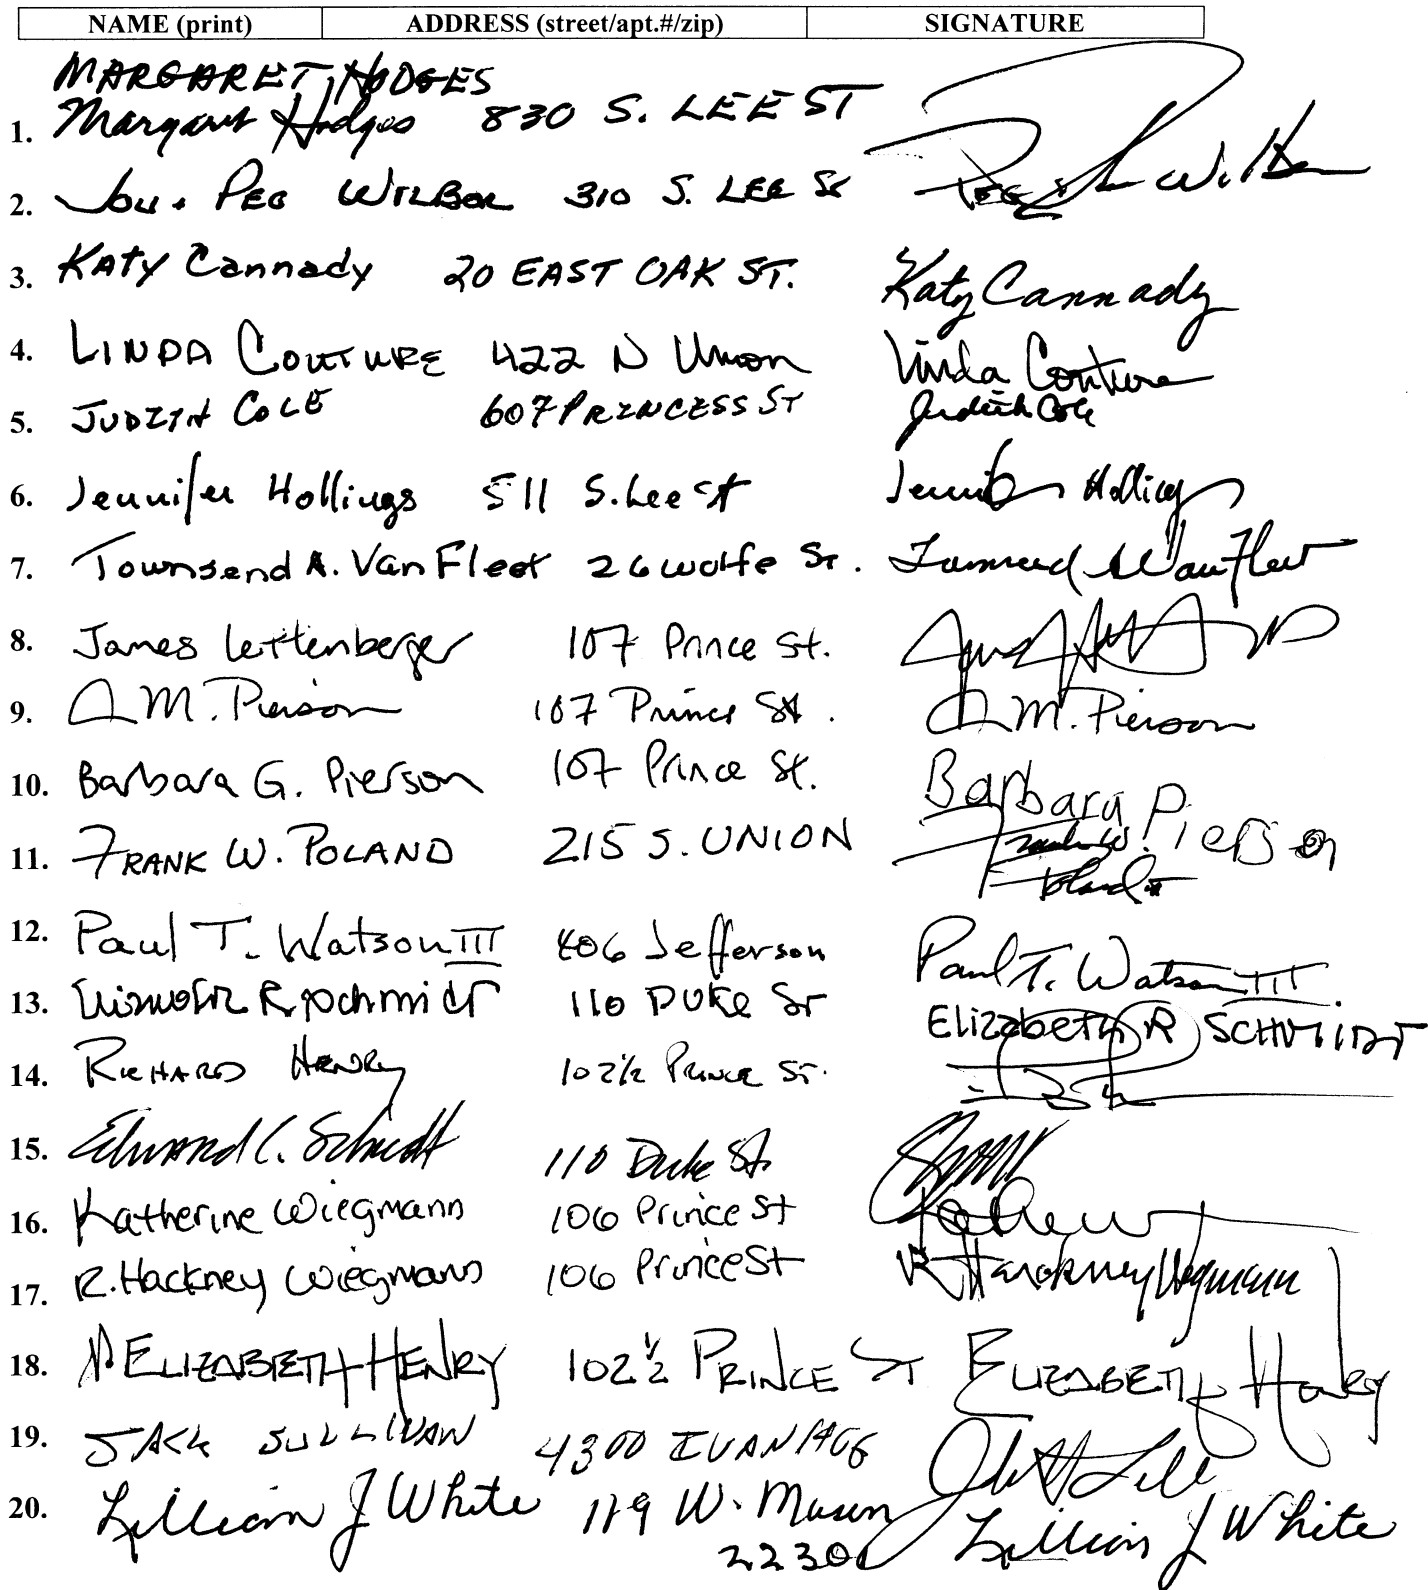 NAME (print) ADDRESS (street/apt.#/zip) SIGNATURE
MARGARET HODGES
1. Margaret Hodges 830 S. LEE ST
2. PEG WILBOR 310 S. LEE St
3. KATY Cannady 20 EAST OAK ST. Katy Cannady
4. LINDA COUTURE 422 N Union Linda Couture
5. JUDITH COLE 607 PRINCESS ST Judith Cole
6. Jennifer Hollings 511 S. Lee St Jennifer Hollings
7. Townsend A. Van Fleet 26 wolfe St. Townsend A Van Fleet
8. James Lettenberger 107 Prince St.
9. A.M. Pierson 107 Prince St. A.M. Pierson
10. Barbara G. Pierson 107 Prince St. Barbara Pierson
11. FRANK W. POLAND 215 S. UNION Frank W. Poland
12. Paul T. Watson III 406 Jefferson Paul T. Watson III
13. R. Schmidt 110 DUKE St Elizabeth R SCHMIDT
14. RICHARD HENRY 102 1/2 PRINCE ST.
15. Edward C. Schmidt 110 Duke St
16. Katherine Wiegmann 106 Prince St
17. R. Hackney Wiegmann 106 Prince St R Hackney Wiegmann
18. ELIZABETH HENRY 102 1/2 PRINCE ST ELIZABETH Henry
19. JACK SULLIVAN 4300 IVANHOE
20. Lillian J White 119 W. Mason Lillian J White
22301